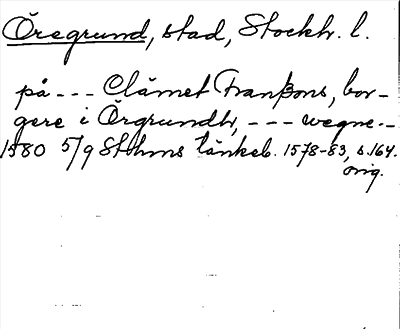 Öregrund, stad, Stockh. l.
på --- Clämet Franßons, bor-
gere i Örgrundh, --- wegne.-
1580 5/9 Sthms tänkeb. 1578-83, s. 164.
orig.